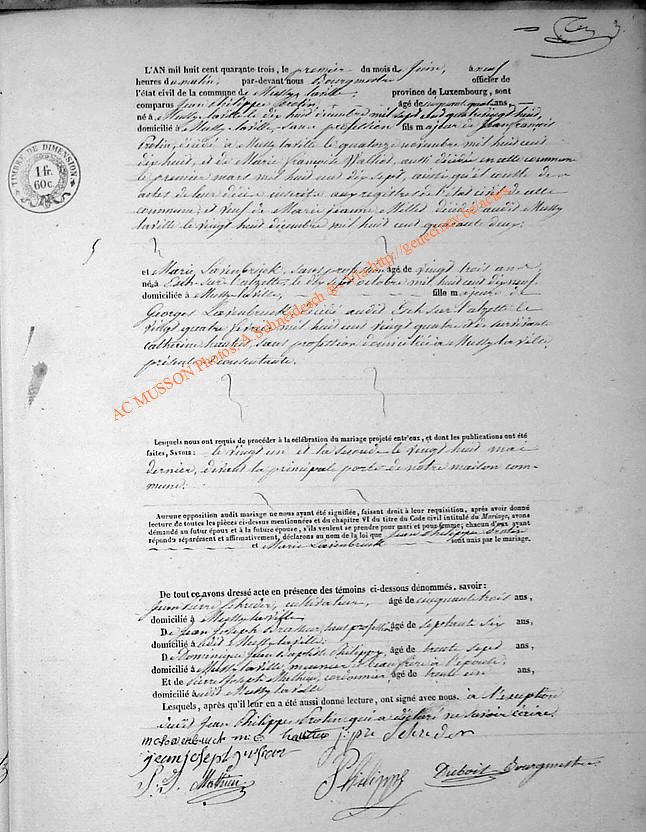 L'AN mil huit cent quarante-trois, le premier du mois de Juin, à neuf
heures du matin, par-devant nous Bourgmestre officier de
l'état civil de la commune de Mussy la ville province de Luxembourg, sont
comparus Jean Philippe Protin, âgé de cinquante quatre ans,
né à Mussy la ville le dix huit décembre mil sept cent quatre vingt huit,
domicilié à Mussy la ville, sans profession fils majeur de Jean françois
Protin, décédé à Mussy la ville le quatorze novembre mil huit cent
dix huit, et de Marie Françoise aussi décédée en cette commune
le premier mars mil huit cent dix sept, ainsi qu'il conste des
actes de leur décès inscrits aux registres de l'état civil de cette
commune, et veuf de Marie jeanne décédée audit Mussy
la ville le vingt huit décembre mil huit cent quarante deux.
TIMBRE DE DIMENSION
1 fr.
60 c.
et Marie Laxenbruck, sans profession âgé de vingt trois ans
né à Esch sur l'alzette, le dix sept octobre mil huit cent dix neuf,
domiciliée à Mussy la ville, fille majeure de
Georges Laxenbruck décédé audit Esch sur l'alzette le
vingt quatre février mil huit cent vingt quatre et de survivante
Catherine sans profession domiciliée à Mussy la ville,
présente et consentante.
AC MUSSON Photos: A.Schneidesch @ Via http://geneachzy.be/actes
Lesquels nous ont requis de procéder à la célébration du mariage projeté entr'eux, et dont les publications ont été
faites, SAVOIR : le vingt un et la seconde le vingt huit mai
dernier, devant la principale porte de notre maison com-
mune.
Aucune opposition audit mariage ne nous ayant été signifiée, faisant droit à leur requisition, après avoir donné
lecture de toutes les pièces ci-dessus mentionnées et du chapitre VI du titre du Code civil intitulé du Mariage, avons
démandé au futur époux et à la future épouse, s'ils veulent se prendre pour mari et pour femme; chacun d'eux ayant
répondu séparément et affirmativement, déclarons au nom de la loi que Jean Philippe Protin
et Marie Laxenbruck sont unis par le mariage.
De tout ce avons dressé acte en présence des témoins ci-dessous dénommés, savoir :
Jean pierre Schreder, cultivateur, âgé de cinquante trois ans,
domicilié à Mussy la ville
De Jean Joseph sans profession âgé de septante six ans,
domicilié audit Mussy la ville.
De Dominique Jean Baptiste Philippe, âgé de trente sept ans,
domicilié à Mussy la ville, meunier, beau frère à l'épouse,
Et de Pierre Joseph Mathieu, cordonnier, âgé de trente un ans,
domicilié audit Mussy la ville
Lesquels, après qu'il leur en a été aussi donné lecture, ont signé avec nous. à l'exception
dudit Jean Philippe Protin qui a déclaré ne savoir écrire.
j: pre schreder
jean joseph
P. J. Mathieu Philippe Duboit Bourgmestre